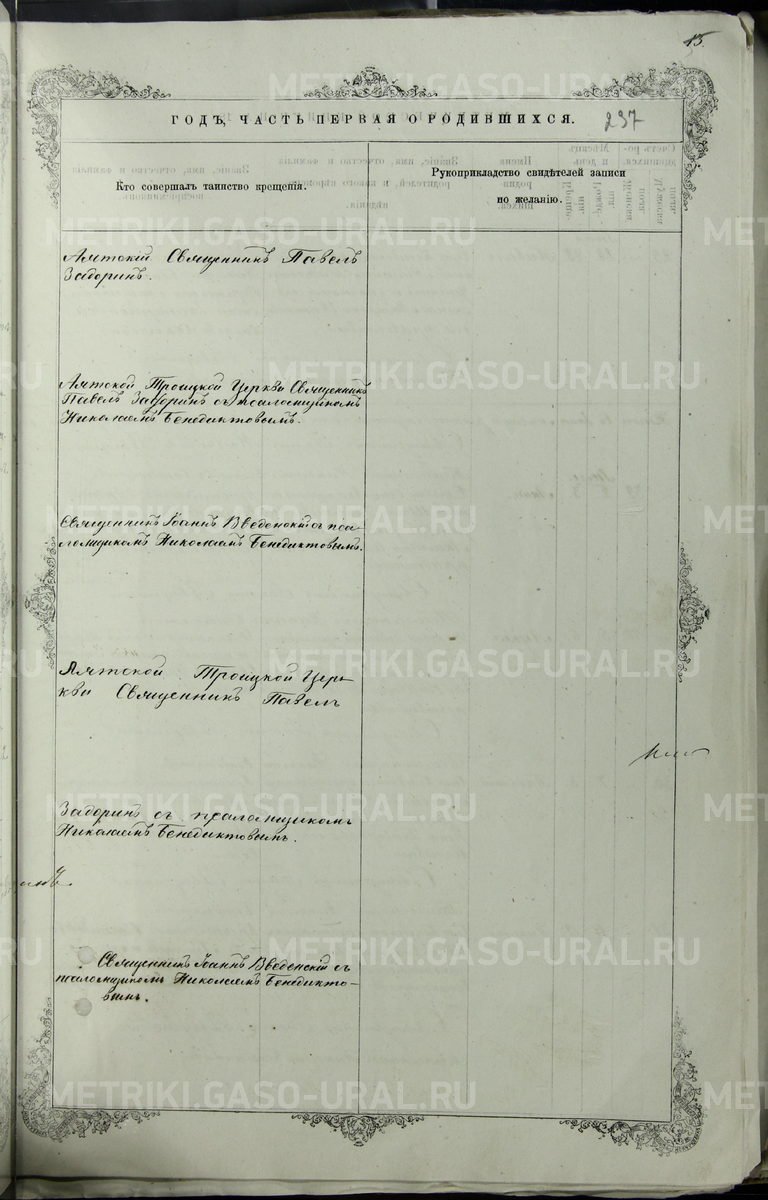 15.
ГОДЪ, ЧАСТЬ ПЕРВАЯ О РОДИВШИХСЯ.
237
Кто совершалъ таинство крещенія.
Рукоприкладство свидѣтелей записи
по желанію.
Аятскій Священникъ Павелъ
Задоринъ.
Аятской Троицкой Церкви Священникъ
Павелъ Задоринъ съ псаломщикомъ
Николаемъ Бенедиктовымъ.
Священникъ Іоаннъ Введенскій съ пса-
ломщикомъ Николаемъ Бенедиктовымъ.
Аятской Троицкой Цер-
кви Священникъ Павелъ
Задоринъ съ псаломщикомъ
Николаемъ Бенедиктовымъ.
Священникъ Іоаннъ Введенскій съ
псаломщикомъ Николаемъ Бенедикто-
вымъ.
METRIKI.GASO-URAL.RU